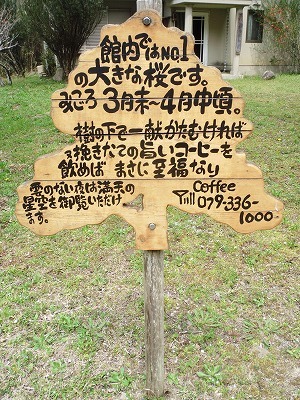 館内ではNO.1
の大きな桜です。
みごろ 3月末〜4月中頃。
樹の下で一献かたむければ
又挽きたての旨いコーヒーを
飲めば まさに至福なり
雲のない夜は満天の
星空を御覧いただけ
ます。
Coffee
079-336-
1000